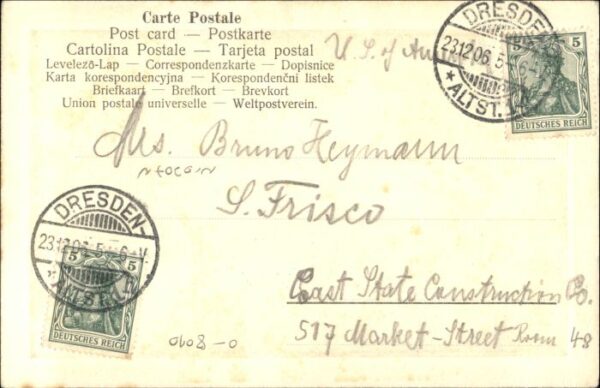 Carte Postale
Post card — Postkarte
Cartolina Postale — Tarjeta postal
Levelező-Lap — Correspondenzkarte — Dopisnice
Karta korespondencyjna — Korespondenční listek
Briefkaart — Brefkort — Brevkort
Union postale universelle — Weltpostverein.
U. S. of
DRESDEN-
23.12.06.5
* ALTST.
5 5
DEUTSCHES REICH
Bruno Heymann
S. Frisco
DRESDEN-
23.12.06.5 -6 V.
ALTST.
5 5
DEUTSCHES REICH
East State Construction Co.
517 Market-Street Room 48
0608-0